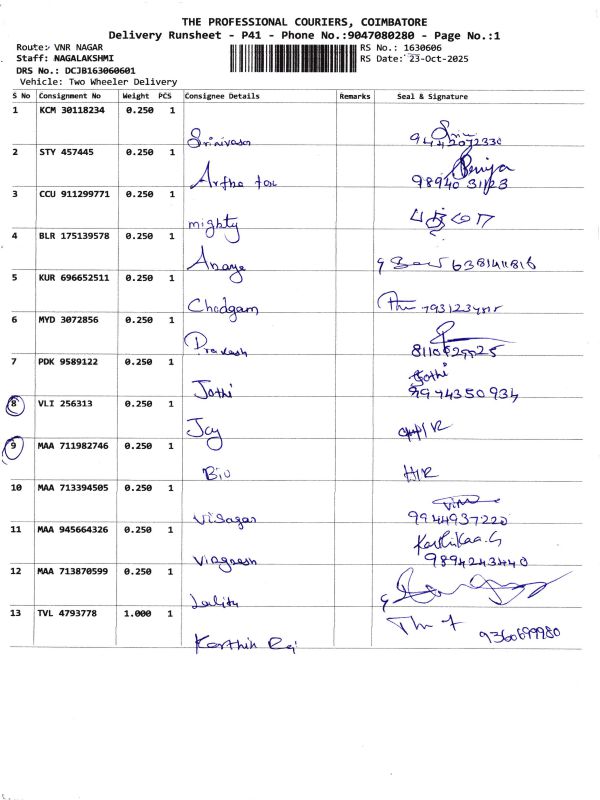 THE PROFESSIONAL COURIERS, COIMBATORE
Delivery Runsheet - P41 - Phone No.:9047080280 - Page No.:1
Route: VNR NAGAR RS No.: 1630606
Staff: NAGALAKSHMI RS Date: 23-Oct-2025
DRS No.: DCJB163060601
Vehicle: Two Wheeler Delivery
S No Consignment No Weight PCS Consignee Details Remarks Seal & Signature
1 KCM 30118234 0.250 1
Srinivasan
2 STY 457445 0.250 1
98940 31123
3 CCU 911299771 0.250 1
mighty
4 BLR 175139578 0.250 1
6381411816
5 KUR 696652511 0.250 1
Chodgam
6 MYD 3072856 0.250 1
Prakash
7 PDK 9589122 0.250 1 Jothi
Jothi 9974350934
8 VLI 256313 0.250 1
Jay
9 MAA 711982746 0.250 1
H/R
10 MAA 713394505 0.250 1
ViSagar 9944937220
11 MAA 945664326 0.250 1 Karthikaa.G
9894243440
12 MAA 713870599 0.250 1
Lalith
13 TVL 4793778 1.000 1
9360699980
Karthik